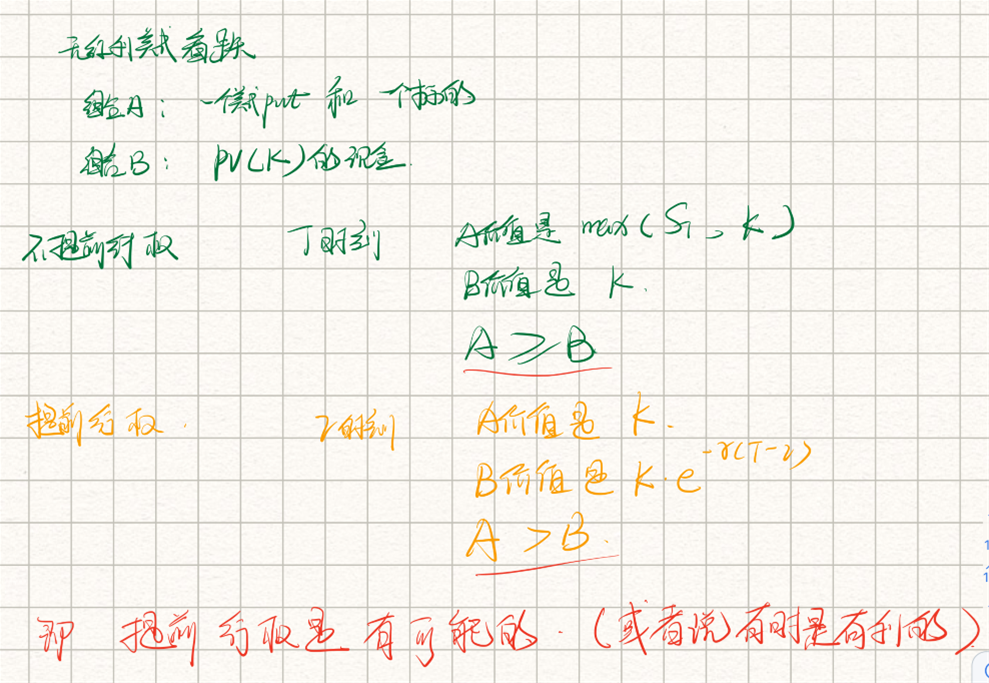 无红利美式看跌
组合A： 一个美式put 和 一个标的
组合B： PV(K)的现金
不提前行权 T时刻 A价值是 max(S_T, K)
B价值是 K.
A ≥ B
提前行权. τ时刻 A价值是 K.
B价值是 K·e^{-r(T-τ)}
A > B.
即 提前行权是有可能的.(或者说有时是有利的)